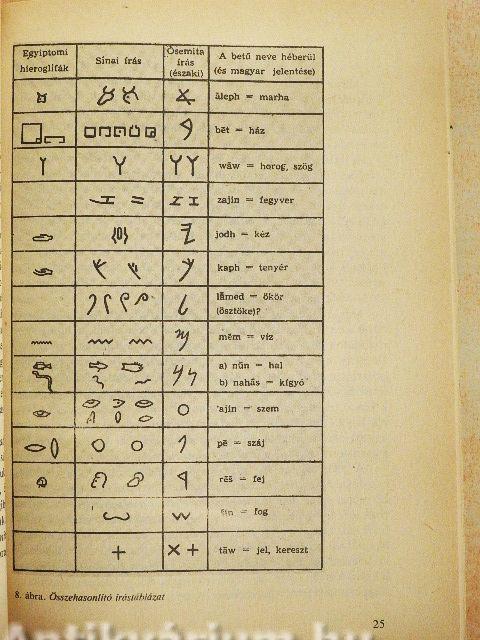 Egyiptomi
hieroglifák
Sinai írás
Ősemita
írás
(északi)
A betű neve héberül
(és magyar jelentése)
āleph = marha
bēt = ház
wāw = horog, szög
zajin = fegyver
jodh = kéz
kaph = tenyér
lāmed = ökör
(ösztöke)?
mēm = víz
a) nūn = hal
b) nahās = kígyó
'ajin = szem
pē = száj
rēš = fej
= fog
tāw = jel, kereszt
8. ábra. Összehasonlító írástáblázat
25
Antikvárium.hu